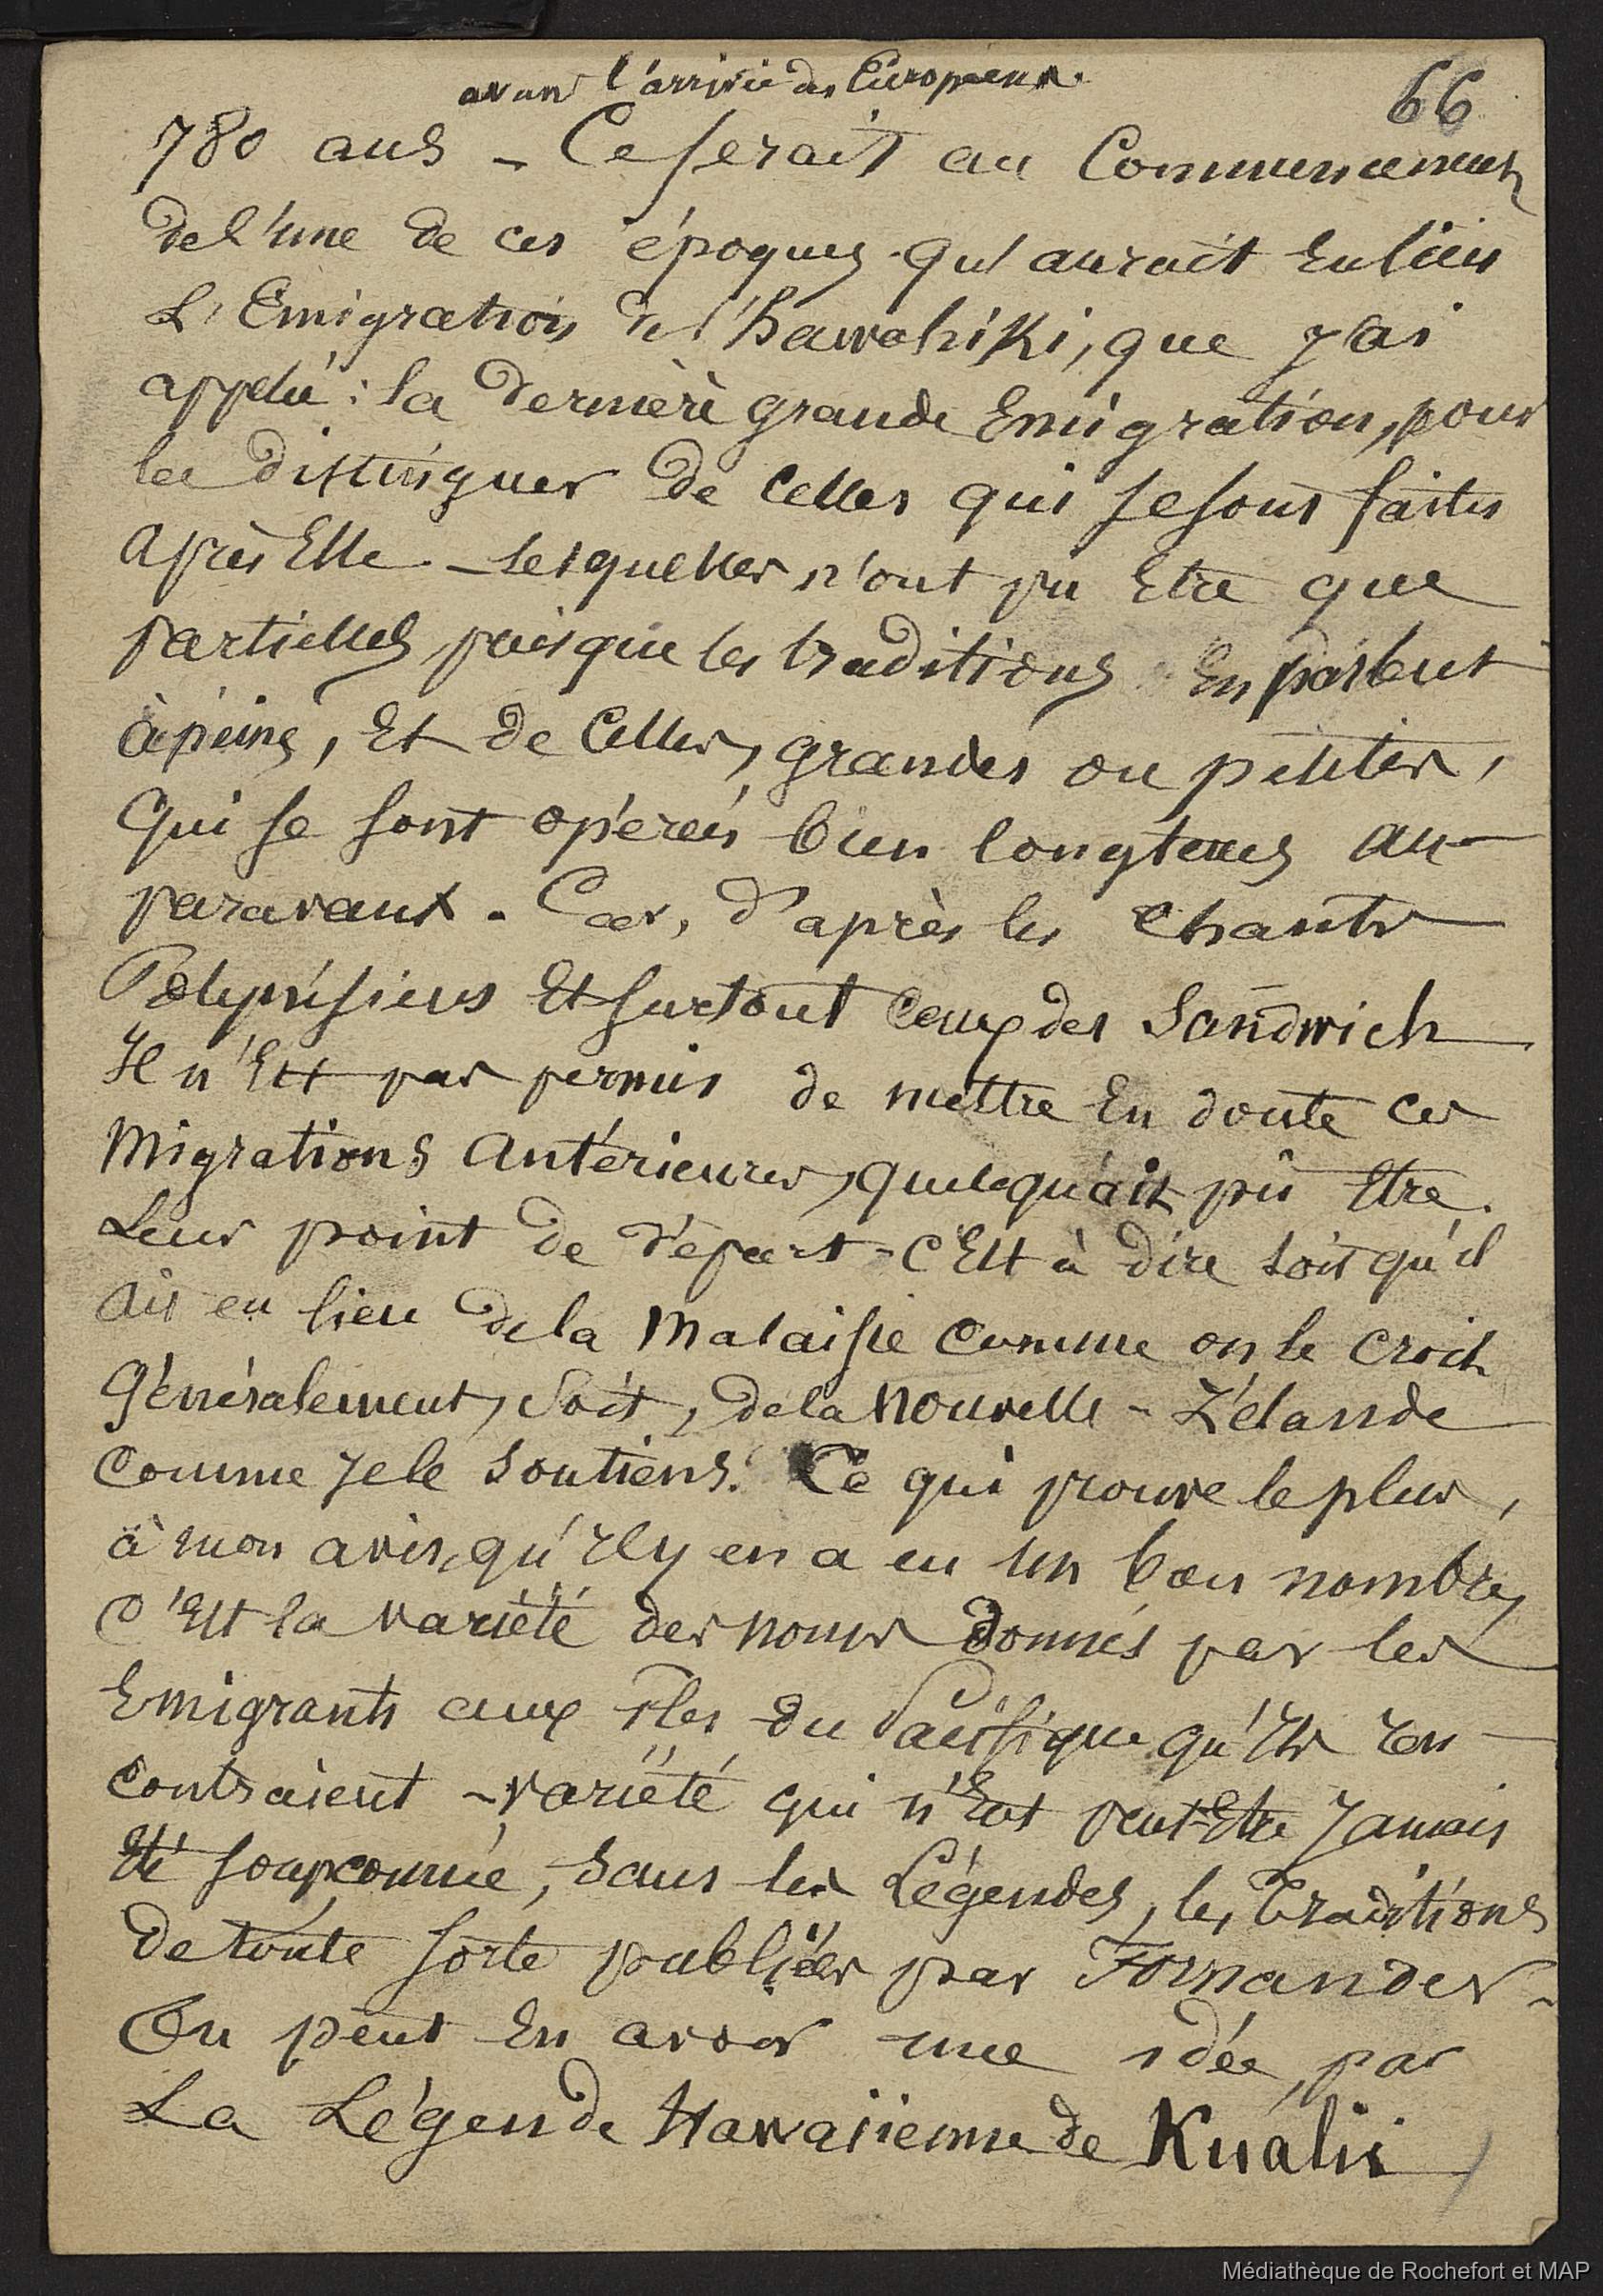 avant l'arrivée des Européens.
66
780 ans - Ce serait au Commencement
de l'une de ces époques qu'aurait eu lieu
L'Emigration de l'hawahiki, que j'ai
appelée : la dernière grande Emigration, pour
la distinguer de celles qui se sont faites
après Elle - lesquelles n'ont pu Etre que
partielles puisque les traditions En parlent
à peine, Et de Celles, grandes ou petites,
Qui se sont opérées bien longtems au-
paravant. Car, d'après les Chants
Polynésiens Et surtout Ceux des Sandwich
Il n'Est pas permis de mettre En doute ces
Migrations Antérieures, quelqu'ait pû Etre.
Leur point de départ - C'Est à dire soit qu'il
Ait eu lieu de la Malaisie Comme on le Croit
Généralement, Soit, de la Nouvelle - Zélande
Comme Je le Soutiens. Ce qui prouve le plus,
à mon avis, qu'Il y en a eu Un bon nombre,
C'Est la variété des noms donnés par les
Emigrants aux Iles du Pacifique qu'Ils ren-
contraient - variété qui n'Eut peut-Etre Jamais
Eté soupçonnée, Sans les Légendes, les Traditions
de toute sorte publiées par Fornander -
On peut En avoir une idée, par
La Légende Hawaiienne de Kualii
Médiathèque de Rochefort et MAP